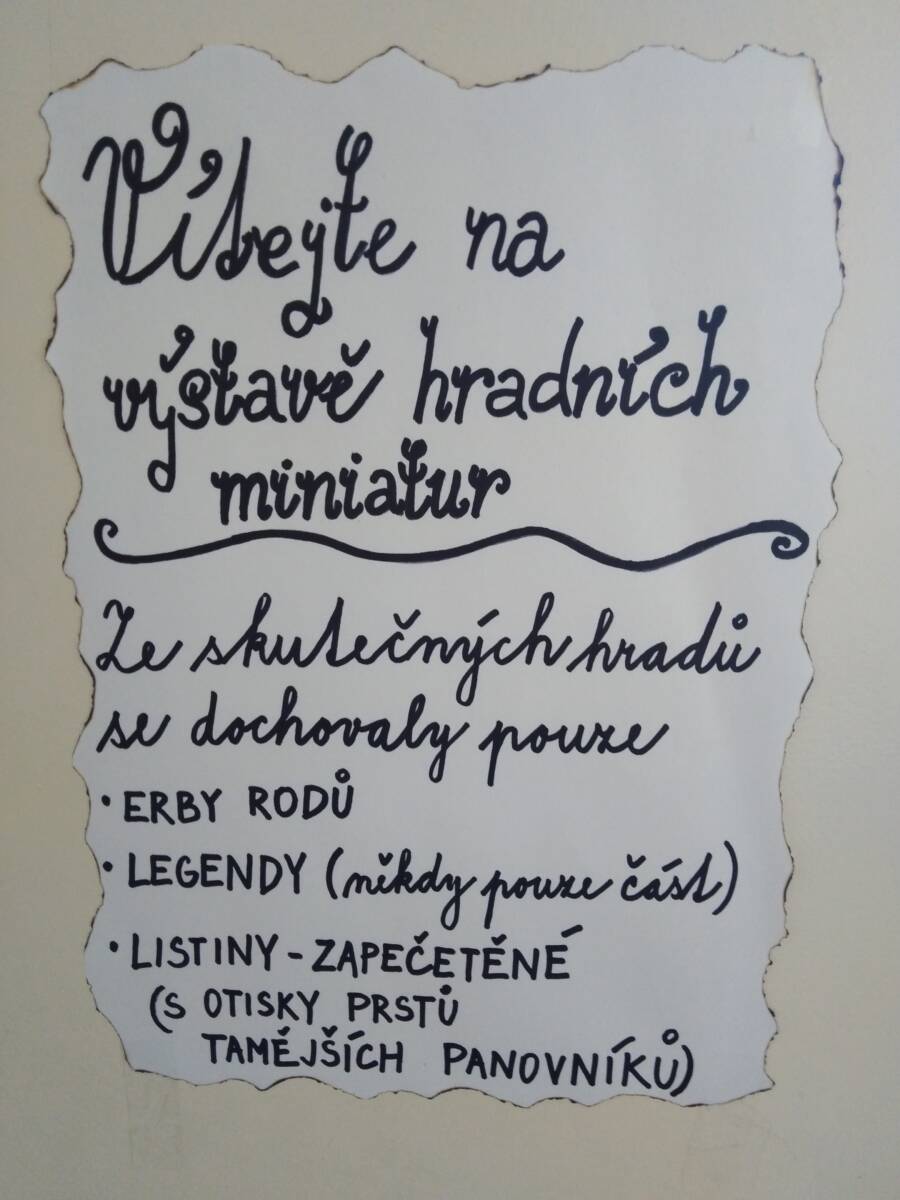 Vítejte na
výstavě hradních
miniatur
Ze skutečných hradů
se dochovaly pouze
• ERBY RODŮ
• LEGENDY (někdy pouze část)
• LISTINY - ZAPEČETĚNÉ
(S OTISKY PRSTŮ
TAMĚJŠÍCH PANOVNÍKŮ)